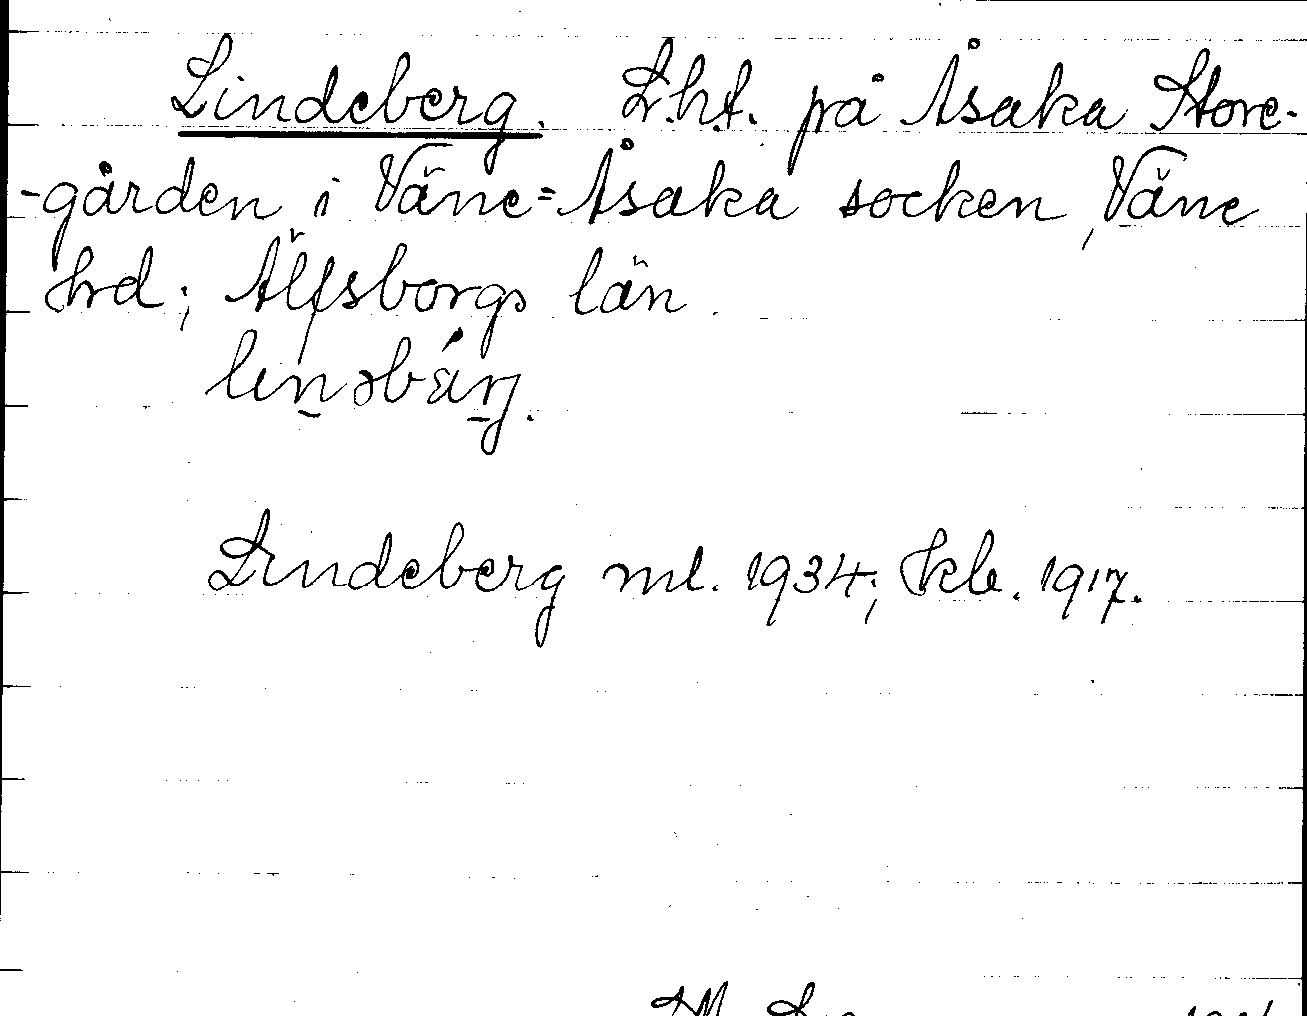 Lindeberg. L.ht. på Åsaka Store-
-gården i Väne=Åsaka socken, Väne
hrd; Älfsborgs län.
Lindeberg ml. 1934; Skb. 1917.